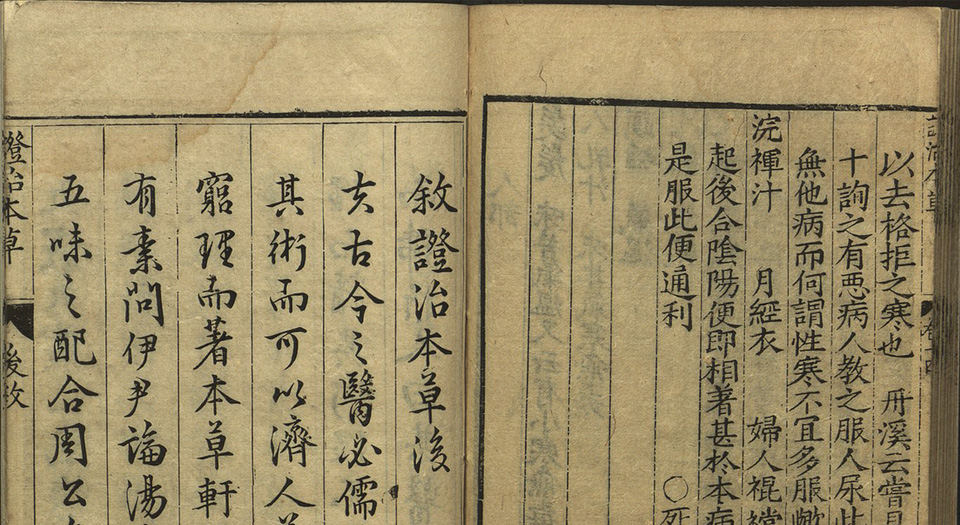 以去格拒之寒也 丹溪云嘗見
十詢之有惡病人教之服人尿此
無他病而何謂性寒不宜多服
浣褌汁 月經衣 婦人裩襠
起後合陰陽便即相著甚於本病
○死
是服此便通利
敘證治本草後
夫古今之醫必儒
其術而可以濟人
窮理而著本草軒
有素問伊尹論湯
五味之配合周公
證治本草
後敘